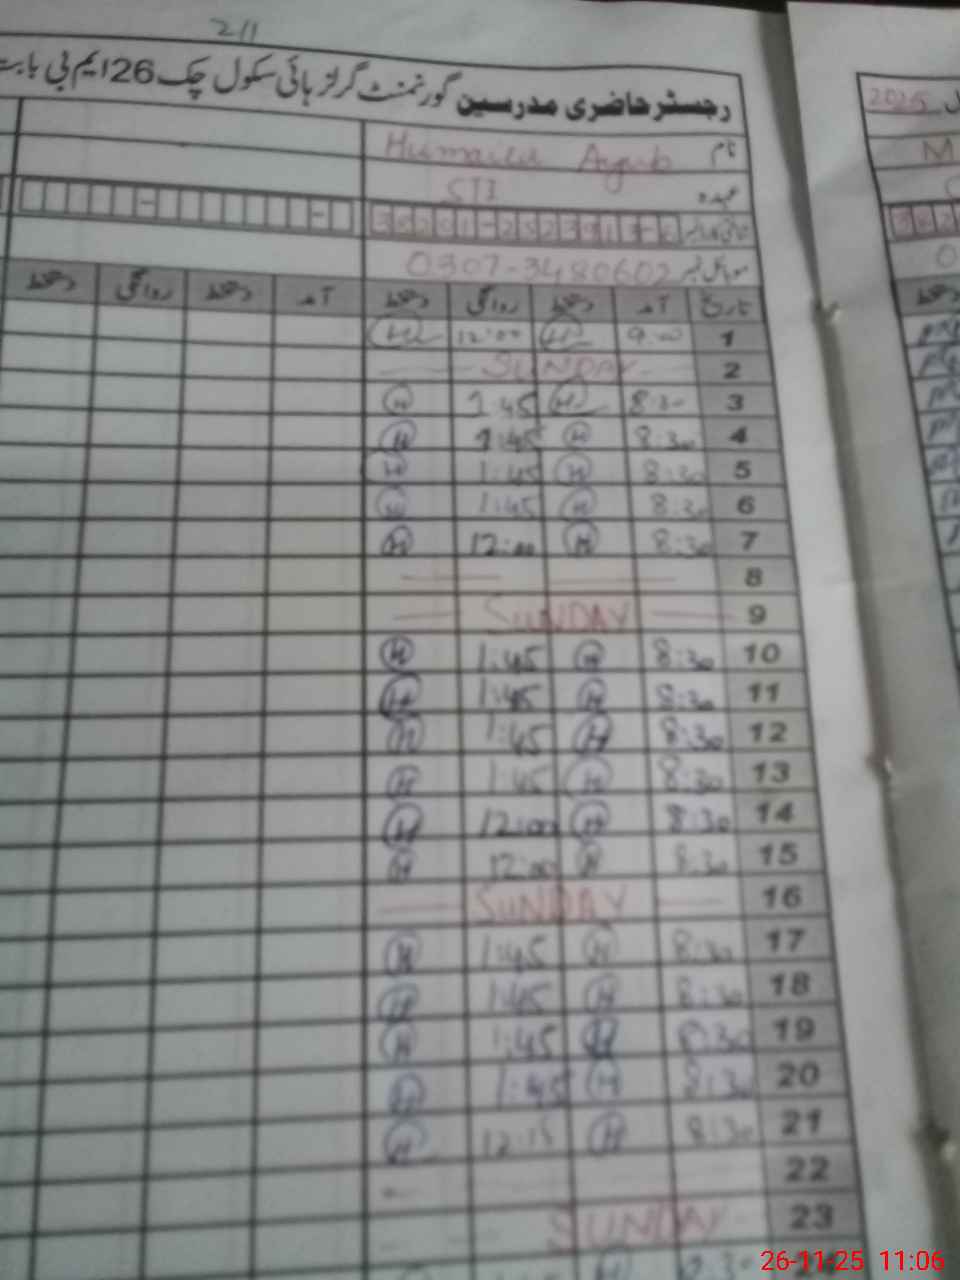 211
رجسٹر حاضری مدرسین گورنمنٹ گرلز ہائی سکول چک 26 ایم بی بابت
2025
نام Humaila Ayub
M
عہدہ STI
موبائل نمبر 0307-3480602
تاریخ آمد دستخط روانگی دستخط آمد دستخط روانگی دستخط
دستخط
1 9:00 H 12:00 H
2 SUNDAY
3 8:30 H 1:45 H
4 8:30 H 1:45 H
5 8:30 H 1:45 H
6 8:30 H 1:45 H
7 8:30 H 12:00 H
8
9 SUNDAY
10 8:30 H 1:45 H
11 8:30 H 1:45 H
12 8:30 H 1:45 H
13 8:30 H 1:45 H
14 8:30 H 12:00 H
15 8:30 H 12:00 H
16 SUNDAY
17 8:30 H 1:45 H
18 8:30 H 1:45 H
19 8:30 H 1:45 H
20 8:30 H 1:45 H
21 8:30 H 12:15 H
22
23 SUNDAY
8:30
26-11-25 11:06